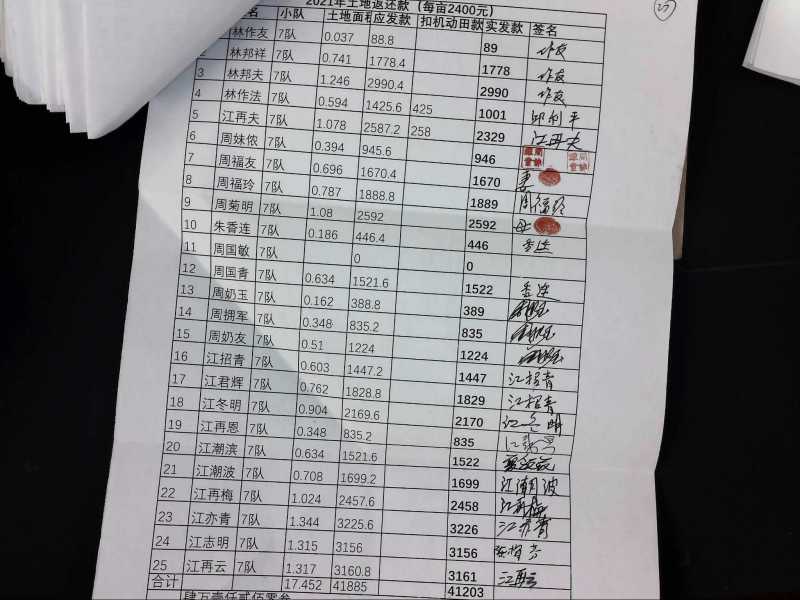 2021年土地返还款（每亩2400元）
名 小队 土地面积 应发款 扣机动田款 实发款 签名
林作友 7队 0.037 88.8 89 作友
林邦祥 7队 0.741 1778.4 1778 作友
3 林邦夫 7队 1.246 2990.4 2990 作友
4 林作法 7队 0.594 1425.6 425 1001 邱利平
5 江再夫 7队 1.078 2587.2 258 2329 江再夫
6 周妹侬 7队 0.394 945.6 946
7 周福友 7队 0.696 1670.4 1670 妻
8 周福玲 7队 0.787 1888.8 1889 周福玲
9 周菊明 7队 1.08 2592 2592 母
10 朱香连 7队 0.186 446.4 446 香连
11 周国敏 7队 0 0
12 周国青 7队 0.634 1521.6 1522 香连
13 周奶玉 7队 0.162 388.8 389
14 周拥军 7队 0.348 835.2 835
15 周奶友 7队 0.51 1224 1224
16 江招青 7队 0.603 1447.2 1447 江招青
17 江君辉 7队 0.762 1828.8 1829 江招青
18 江冬明 7队 0.904 2169.6 2170 江冬明
19 江再恩 7队 0.348 835.2 835
20 江潮滨 7队 0.634 1521.6 1522
21 江潮波 7队 0.708 1699.2 1699 江潮波
22 江再梅 7队 1.024 2457.6 2458 江再梅
23 江亦青 7队 1.344 3225.6 3226 江亦青
24 江志明 7队 1.315 3156 3156
25 江再云 7队 1.317 3160.8 3161 江再云
合计 17.452 41885 41203
肆万壹仟贰佰零叁